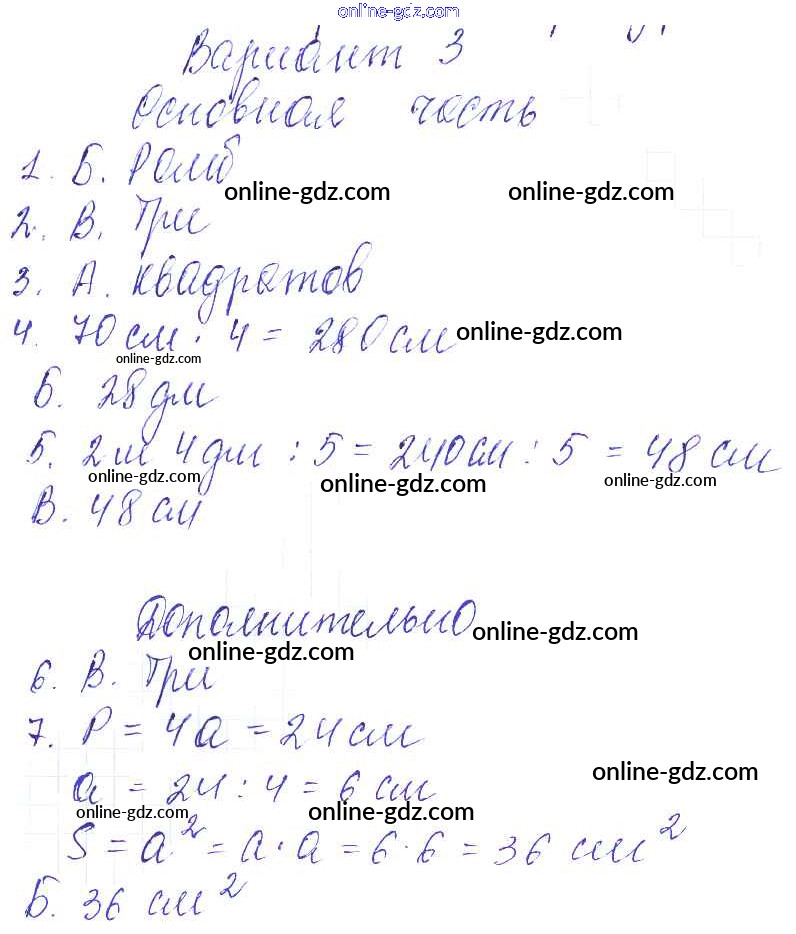 online-gdz.com
Вариант 3
Основная часть
1. Б. Ромб
online-gdz.com online-gdz.com
2. В. Три
3. А. квадратов
4. 70 см · 4 = 280 см online-gdz.com
online-gdz.com
Б. 28 дм
5. 2 м 4 дм : 5 = 240 см : 5 = 48 см
online-gdz.com online-gdz.com online-gdz.com
В. 48 см
Дополнительно online-gdz.com
online-gdz.com
6. В. Три
7. P = 4a = 24 см
online-gdz.com
a = 24 : 4 = 6 см
online-gdz.com online-gdz.com
S = a² = a · a = 6 · 6 = 36 см²
Б. 36 см²